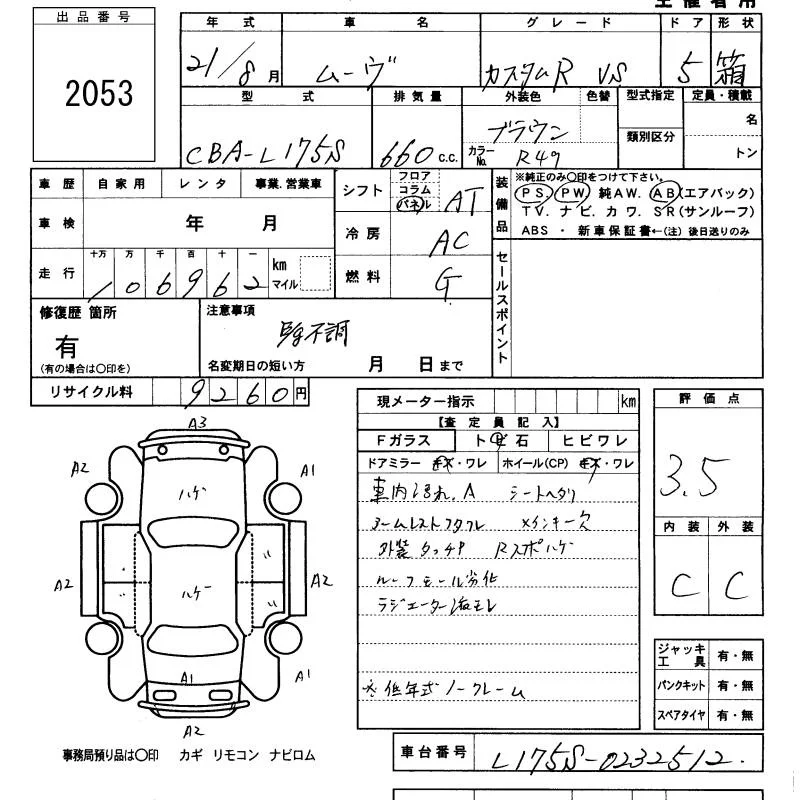 出品番号
2053
年式
21/8月
車名
ムーヴ
グレード
カスタムR VS
ドア
5
形状
箱
型式
CBA-L175S
排気量
660 c.c.
外装色
ブラウン
色替
カラーNo.
R49
型式指定
類別区分
定員・積載
名
トン
車歴 自家用 レンタ 事業.営業車
車検 年 月
走行 十万 万 千 百 十 一
106962 km マイル
シフト フロア コラム パネル AT
冷房 AC
燃料 G
装備品
※純正のみ○印をつけて下さい。
PS PW 純AW. AB(エアバック)
TV. ナビ. カワ. SR(サンルーフ)
ABS ・ 新車保証書←(注) 後日送りのみ
セールスポイント
修復歴 箇所
有
(有の場合は○印を)
注意事項
不調
名変期日の短い方 月 日まで
リサイクル料 9260円
現メーター指示 km
【査定員記入】
Fガラス トビ石 ヒビワレ
ドアミラー キズ・ワレ ホイール(CP) キズ・ワレ
車内汚れ.A シートヘタリ
アームレストフタワレ メインキー欠
外装タッチP Rスポハゲ
ルーフモール劣化
ラジエーター液モレ
※低年式ノークレーム
評価点
3.5
内装 外装
C C
ジャッキ工具 有・無
パンクキット 有・無
スペアタイヤ 有・無
A3
A2
A1
ハゲ
A2
A2
ハゲー
A2
A1
A1
A2
事務局預り品は○印 カギ リモコン ナビロム
車台番号 L175S-0232512.